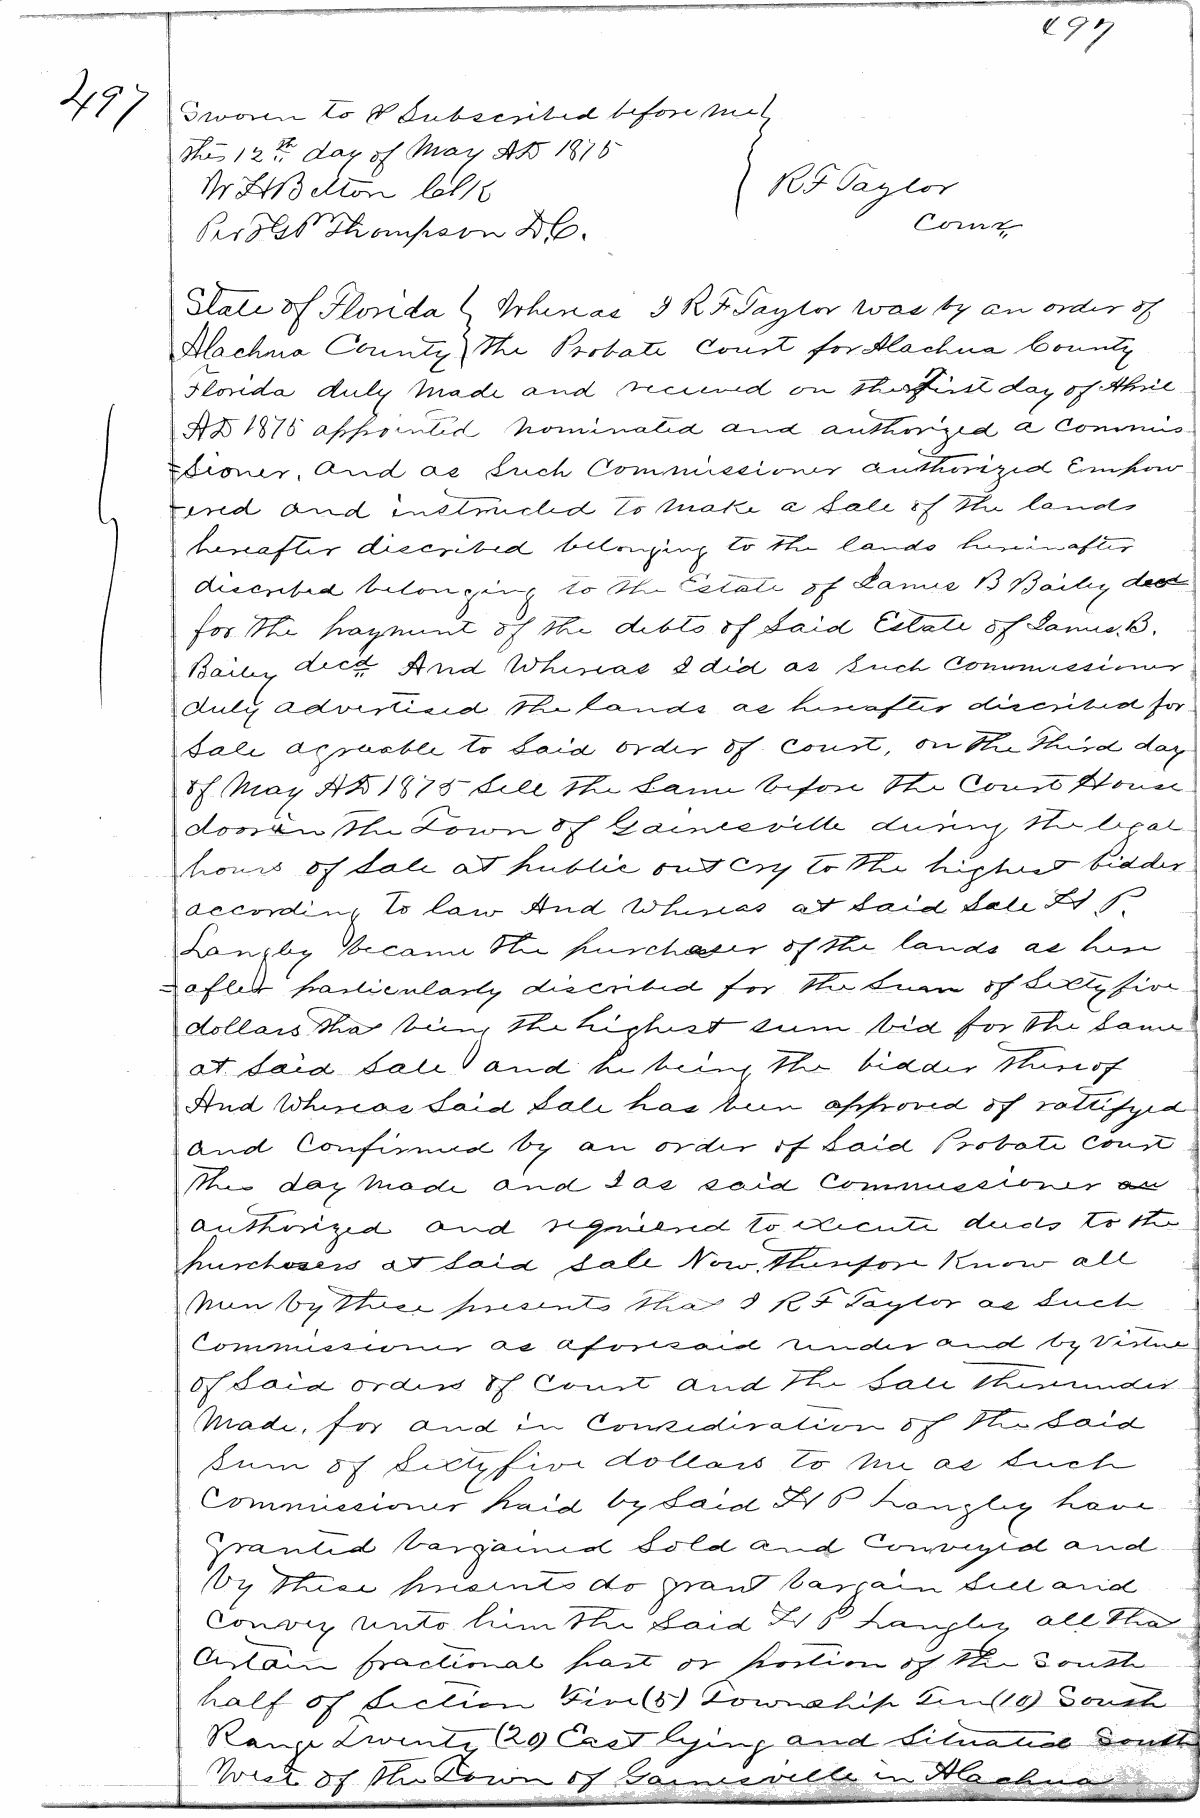 497
497
Sworen to & Subscribed before me
this 12th day of May AD 1875
W H Belton Clk
R F Taylor
Per F G P Thompson D.C.
Comr
State of Florida } Whereas I R F Taylor was by an order of
Alachua County } the Probate Court for Alachua County
Florida duly made and recieved on the first day of April
AD 1875 appointed nominated and authorized a Commis
=sioner, and as such Commissioner authorized Empow
-ered and instructed to make a Sale of the lands
hereafter discribed belonging to the lands hereinafter
discribed belonging to the Estate of James B Bailey decd
for the payment of the debts of Said Estate of James. B.
Bailey decd And Whereas I did as such Commissioner
duly advertised the lands as hereafter discribed for
Sale agreable to Said order of Court, on the Third day
of May AD 1875 Sell the Same before the Court House
door in the Town of Gainesville during the legal
hours of Sale at public out cry to the highest bidder
according to law And Whereas at Said Sale H P.
Langley became the purchaser of the lands as here
=after particularly discribed for the Sum of Sixty five
dollars tha being the highest sum bid for the Same
at Said Sale and he being the bidder thereof
And Whereas Said Sale has been approved of rattifyed
and Confirmed by an order of Said Probate Court
this day made and I as said Commissioner an
authorized and requiered to execute deeds to the
purchasers at Said Sale Now, therefore Know all
Men by these presents tha I R F Taylor as Such
Commissioner as aforesaid under and by Virtue
of Said orders of Court and the Sale thereunder
Made, for and in Consediration of the Said
Sum of Sixty five dollars to me as Such
Commissioner paid by Said H P Langley have
granted bargained Sold and Conveyed and
by these presents do grant bargain Sell and
Convey unto him the Said H P Langley all tha
Certain fractional part or portion of the South
half of Section Five (5) Township Ten (10) South
Range Twenty (20) East lying and Situated South
West of the Town of Gainesville in Alachua